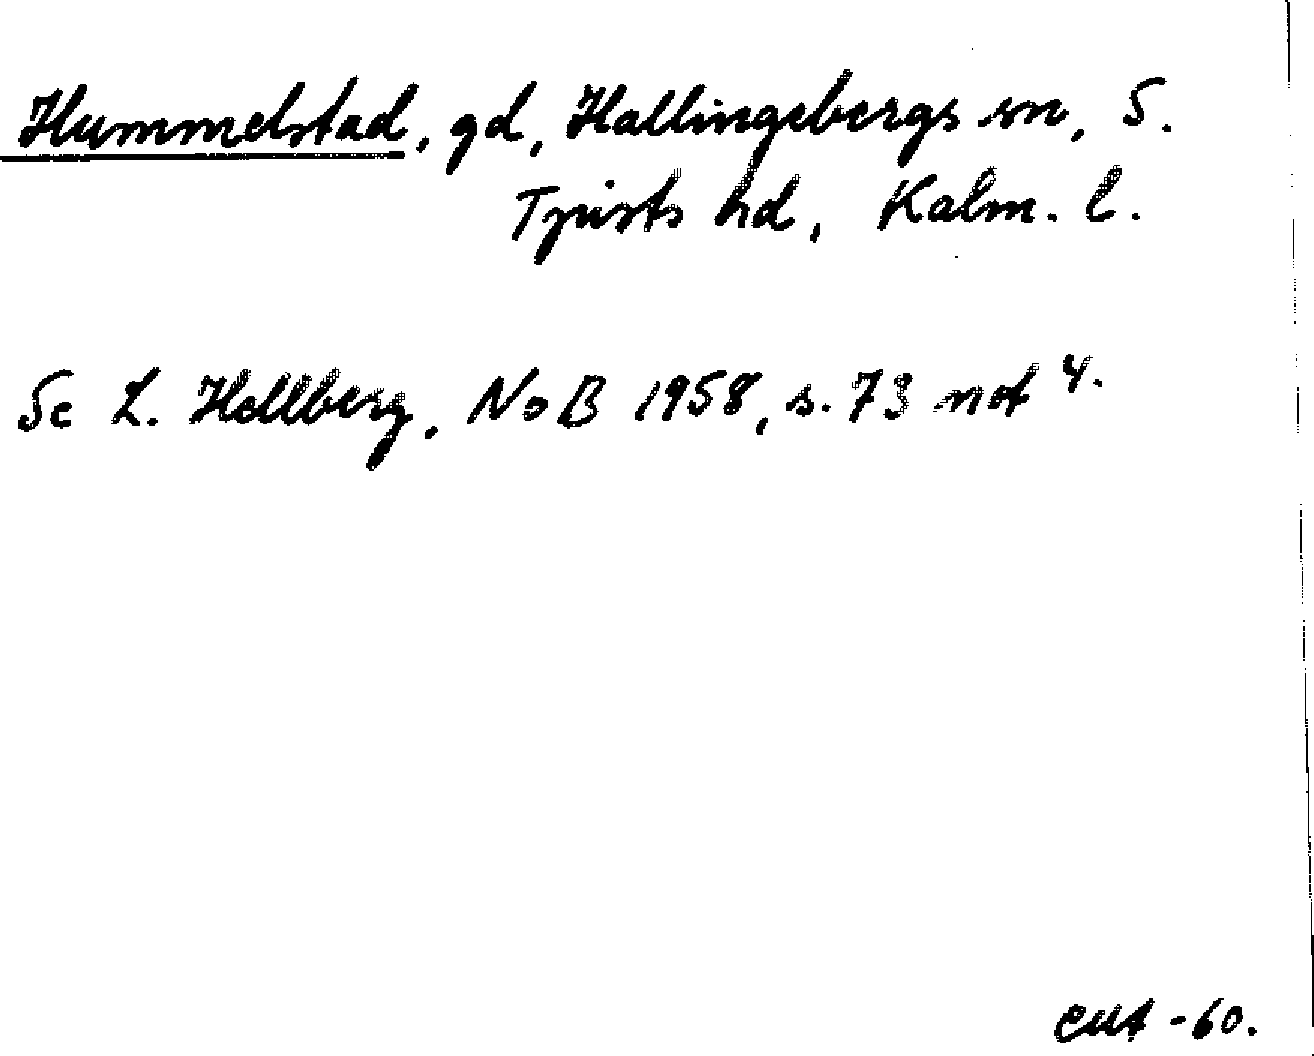 Hummelstad, gd, Hallingebergs sn, S.
Tjusts hd, Kalm. l.
Se L. Hellberg, NoB 1958, s. 73 not 4.
-60.